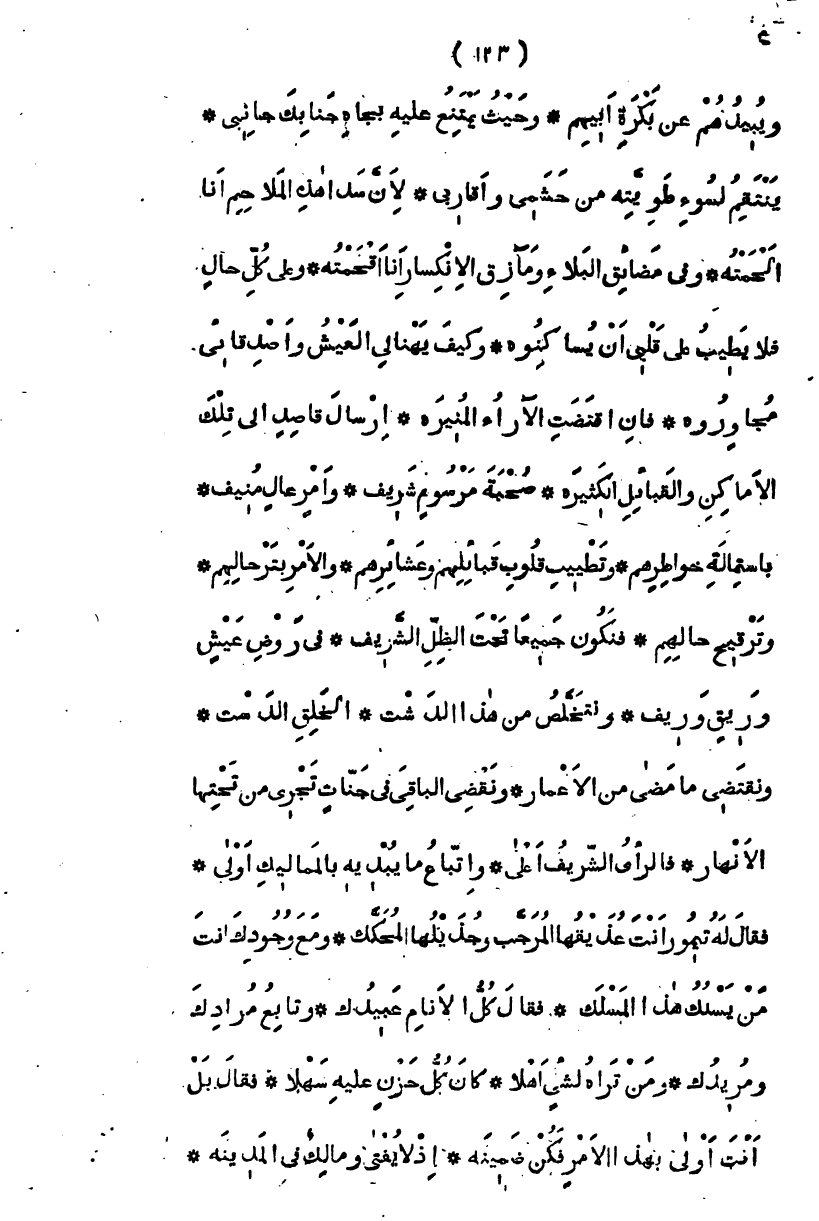 (١٢٣)
ويُبِيدُهُمْ عن بَكْرَةِ اَبِيهِم * وحَيْثُ يَمْتَنِعُ عليهِ بجاهِ جَنابِكَ جانِبى *
يَنْتَقِمُ لسُوءِ طَوِيَّتِه من حَشَمِى وأقارِبى * لِأَنَّ سَدا هٰذِهِ المَلاحِمِ اَنا
اَلْحَمْتُه * وفى مَضائِقِ البَلاءِ ومَآزِقِ الاِنْكِسارِ اَنا اَقْحَمْتُه * وعلى كُلِّ حالٍ
فلا يَطِيبُ على قَلْبِى اَنْ يُساكِنُوه * وكيفَ يَهْنالِى العَيْشُ واَصْدِقائى
مُجاوِرُوه * فانِ اقتَضَتِ الآراءُ المُنِيرَه * اِرْسالَ قاصِدٍ الى تِلْكَ
الاَماكِنِ والقَبائِلِ الكَثِيرَه * صُحْبَةَ مَرْسُومٍ شَرِيف * واَمْرٍ عالٍ مُنِيف *
باستِمالَةِ خواطِرِهم * وتَطْيِيبِ قلُوبِ قَبائِلِهم وعَشائِرِهم * والاَمْرِ بتَرْحالِهِم *
وتَرْقِيحِ حالِهِم * فنَكُون جَمِيعًا تَحْتَ الظِّلِّ الشَّرِيف * فى رَوْضِ عَيْشٍ
ورِيقٍ وَرِيف * ونتَخَلَّصُ من هٰذا الدَشْت * الخَلِقِ الدَسْت *
ونقتَضِى ما مَضٰى من الاَعْمار * ونَقْضِى الباقِىَ فى جَنّاتٍ تَجْرِى من تَحْتِها
الاَنْهار * فالرَأىُ الشّرِيفُ اَعْلٰى * واتّباعُ ما يُبْدِيهِ بالمَمالِيكِ اَوْلٰى *
فقالَ لَهُ تيمُور اَنْتَ عُذَيْقُها المُرَجَّب وجُذَيْلُها المُحَكَّك * ومَعَ وُجُودِكَ انتَ
مَنْ يَسْلُكُ هٰذا المَسْلَك * فقالَ كُلُّ الاَنامِ عَبِيدُك * وتابِعُ مُرادِكَ
ومُرِيدُك * ومَنْ تَراهُ لشَىْءٍ اَهْلا * كانَ كُلُّ حَزْنٍ عليهِ سَهْلا * فقالَ بَلْ
اَنْتَ اَوْلٰى بهٰذا الاَمْرِ فكُنْ ضَمِينَه * اِذْ لا يُفْتٰى ومالِكٌ فى المَدِينَه *